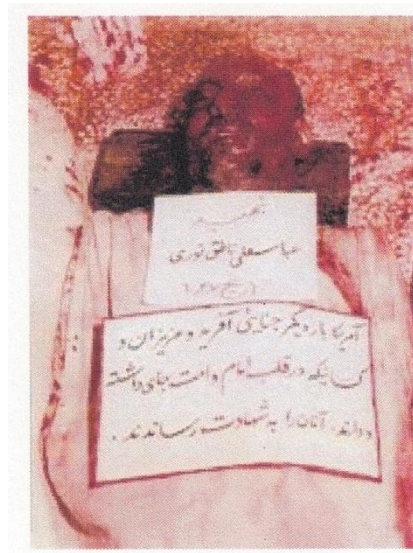 شهید
عباسعلی ناطق نوری
آمریکا بار دیگر جنایتی آفرید و عزیزان و
کسانیکه در قلب امام و امت جای داشته
و دارند، آنان را به شهادت رساندند.